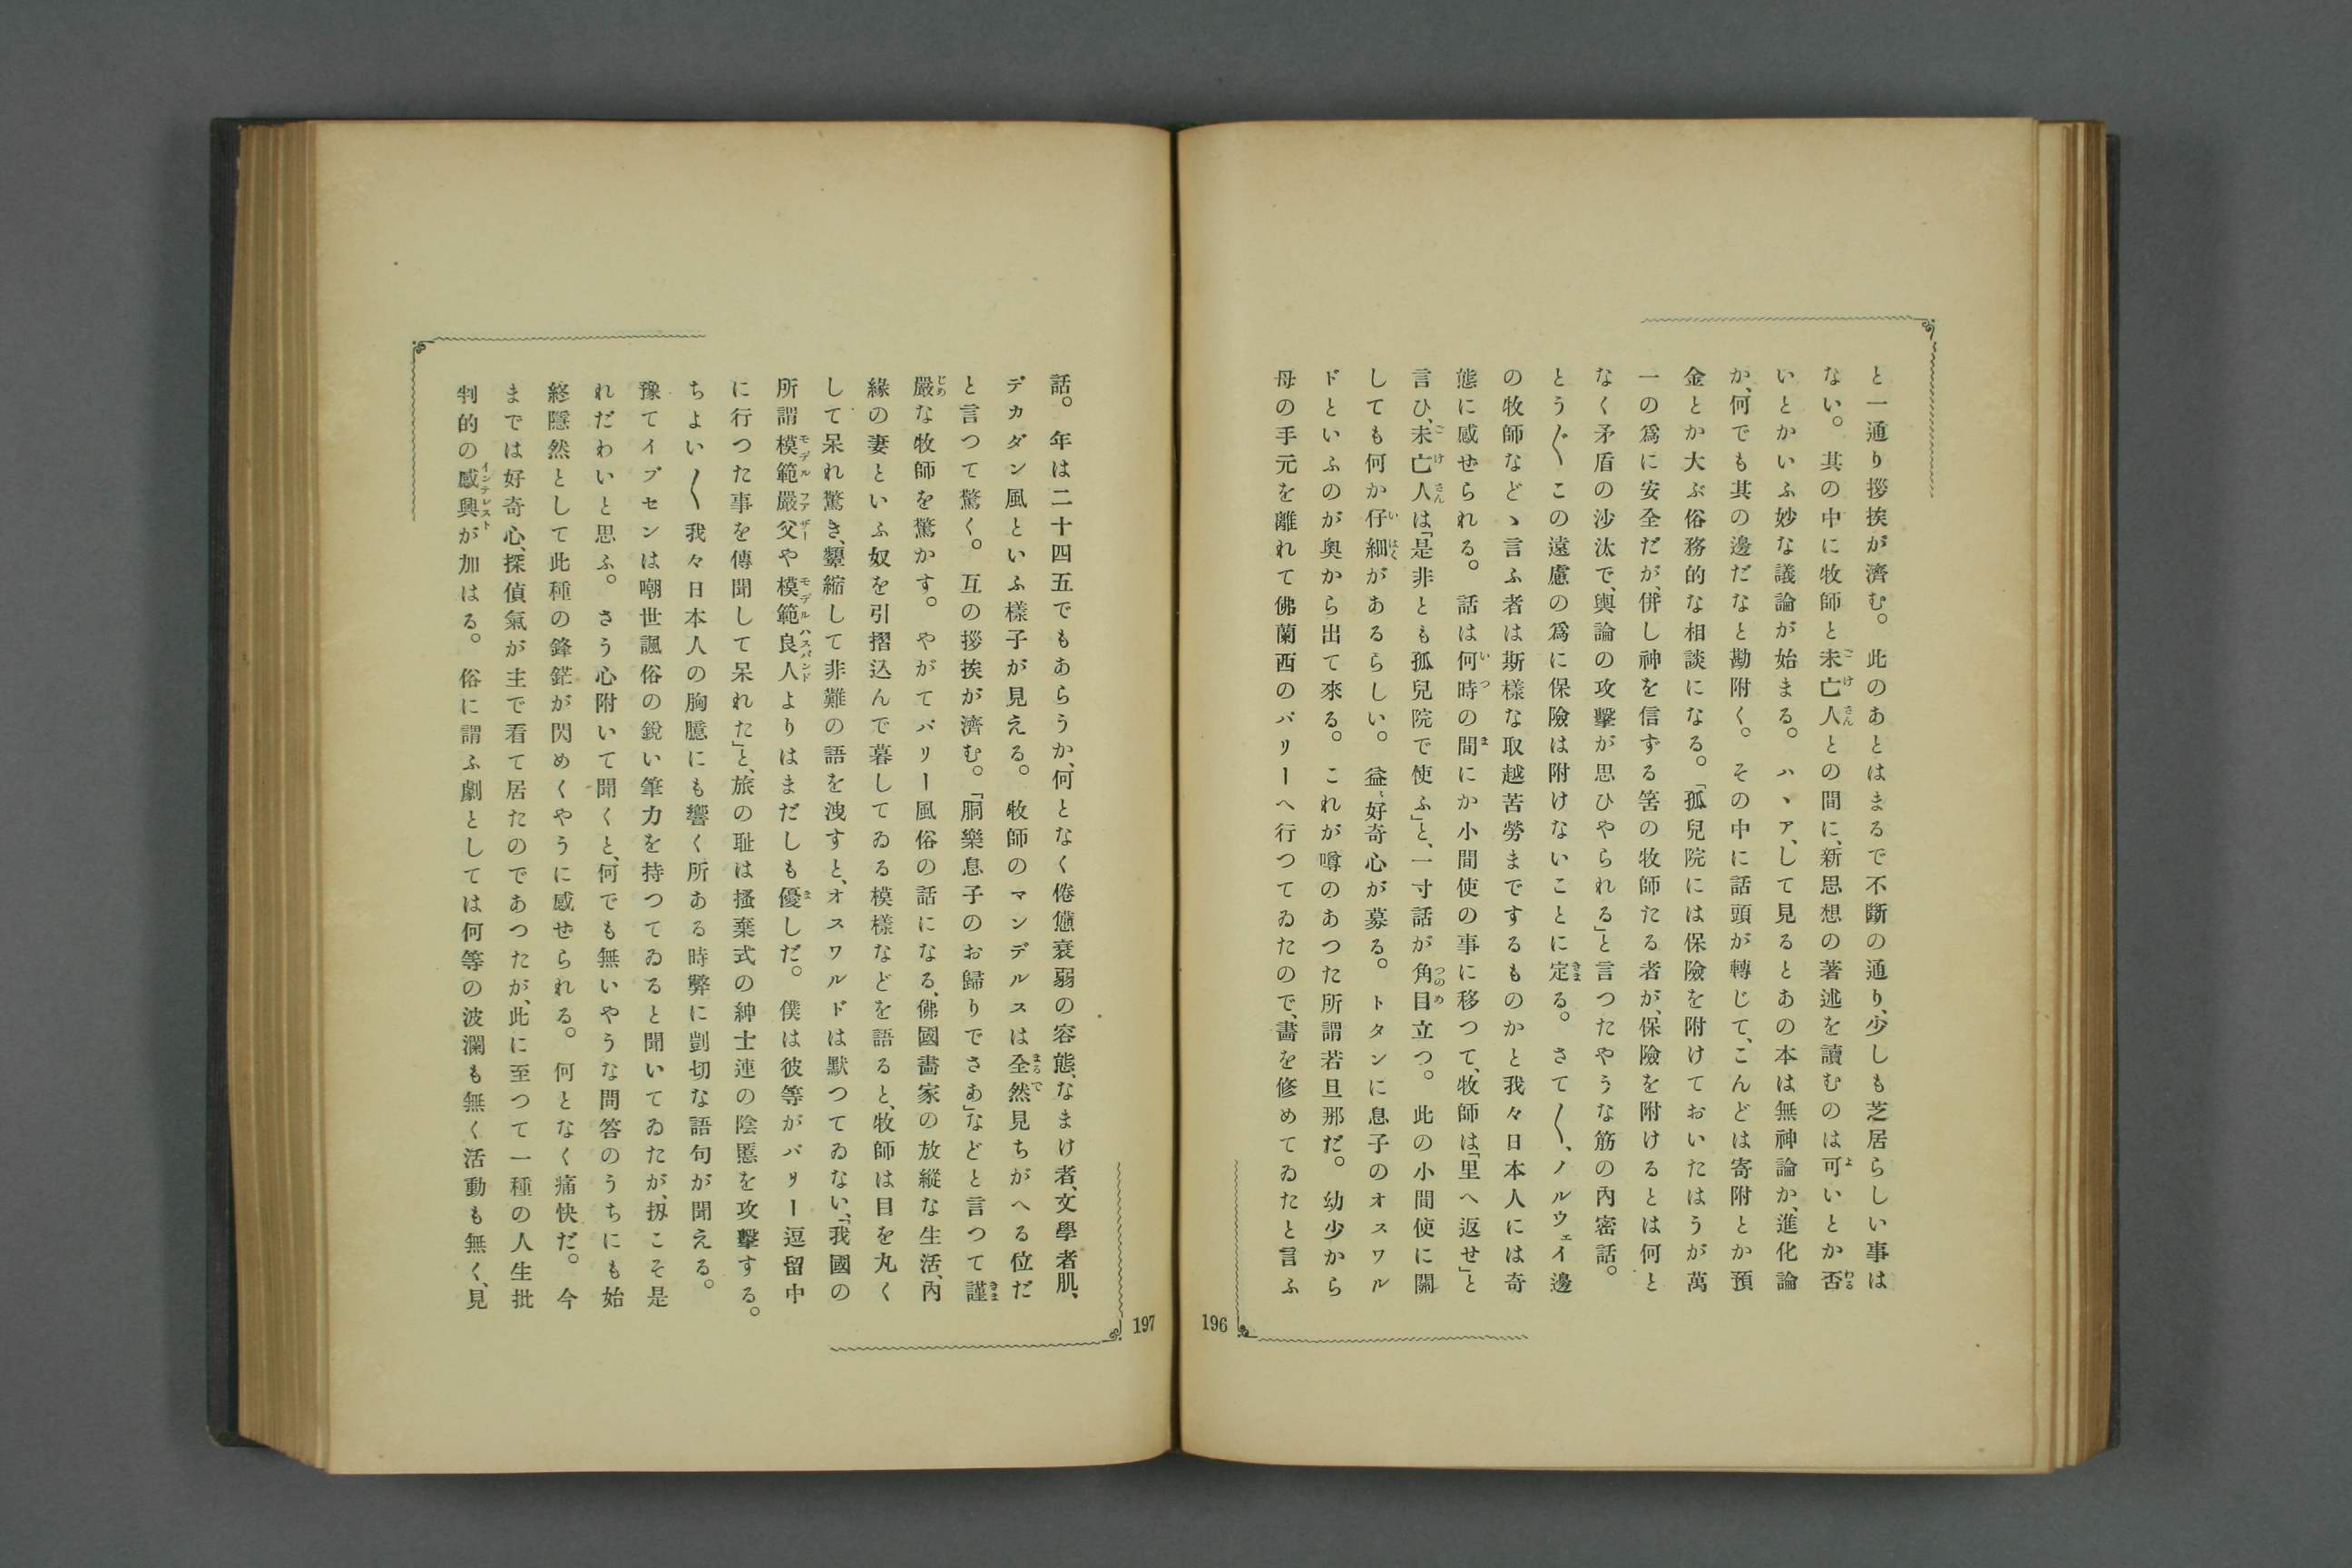 と一通り挨拶が濟む。此のあとはまるで不斷の通り、少しも芝居らしい事は
ない。其の中に牧師と未亡人との間に、新思想の著述を讀むのは可いとか否
いとかいふ妙な議論が始まる。ハヽア、して見るとあの本は無神論か、進化論
か、何でも其の邊だなと勘附く。その中に話頭が轉じて、こんどは寄附とか預
金とか大ぶ俗務的な相談になる。「孤兒院には保險を附けておいたはうが萬
一の爲に安全だが、併し神を信ずる筈の牧師たる者が、保險を附けるとは何と
なく矛盾の沙汰で、輿論の攻擊が思ひやられる」と言つたやうな筋の內密話。
とう〴〵この遠慮の爲に保險は附けないことに定る。さて〳〵、ノルウェイ邊
の牧師などゝ言ふ者は斯樣な取越苦勞までするものかと我々日本人には奇
態に感ぜられる。話は何時の間にか小間使の事に移つて、牧師は「里へ返せ」と
言ひ、未亡人は「是非とも孤兒院で使ふ」と、一寸話が角目立つ。此の小間使に關
しても何か仔細があるらしい。益〻好奇心が募る。トタンに息子のオスワル
ドといふのが奧から出て來る。これが噂のあつた所謂若旦那だ。幼少から
母の手元を離れて佛蘭西のパリーへ行つてゐたので、畵を修めてゐたと言ふ
196
話。年は二十四五でもあらうか、何となく倦憊衰弱の容態、なまけ者、文學者肌、
デカダン風といふ樣子が見える。牧師のマンデルスは全然見ちがへる位だ
と言つて驚く。互の挨拶が濟む。「胴樂息子のお歸りでさあ」などと言つて謹
嚴な牧師を驚かす。やがてパリー風俗の話になる、佛國畵家の放縱な生活、內
緣の妻といふ奴を引摺込んで暮してゐる模樣などを語ると、牧師は目を丸く
して呆れ驚き、顰縮して非難の語を洩すと、オスワルドは默つてゐない、「我國の
所謂模範嚴父や模範良人よりはまだしも優しだ。僕は彼等がパリー逗留中
に行つた事を傳聞して呆れた」と、旅の耻は搔棄式の紳士連の陰慝を攻擊する。
ちよい〳〵我々日本人の胸臆にも響く所ある時弊に剴切な語句が聞える。
豫てイブセンは嘲世諷俗の銳い筆力を持つてゐると聞いてゐたが、扨こそ是
れだわいと思ふ。さう心附いて聞くと、何でも無いやうな問答のうちにも始
終隱然として此種の鋒鋩が閃めくやうに感ぜられる。何となく痛快だ。今
までは好奇心、探偵氣が主で看て居たのであつたが、此に至つて一種の人生批
判的の感興が加はる。俗に謂ふ劇としては何等の波瀾も無く活動も無く、見
197